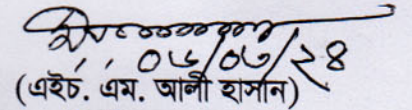 ০৬/০৬/২৪
(এইচ. এম. আলী হাসান)